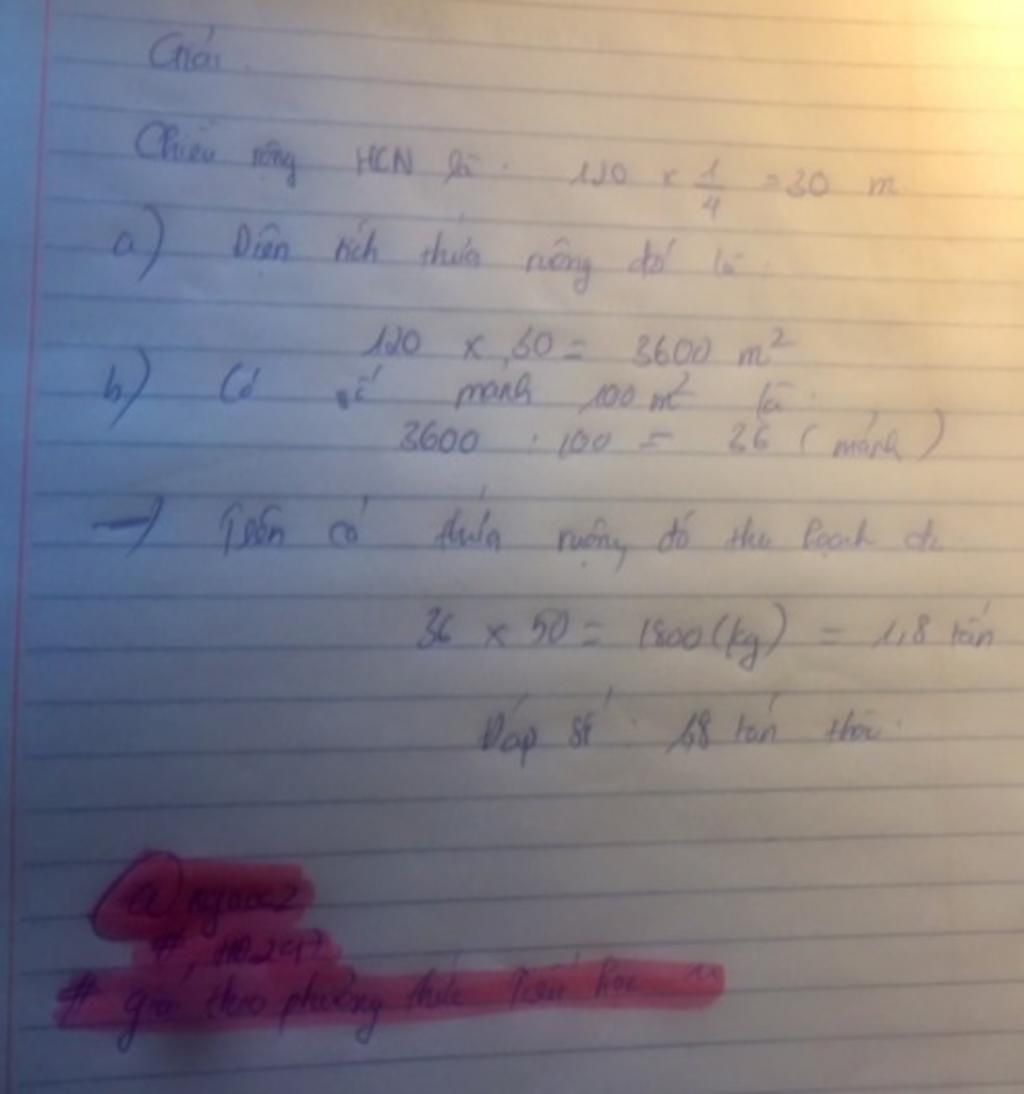 Giải
Chiều rộng HCN là: 120 x 1/4 = 30 m
a) Diện tích thửa ruộng đó là:
120 x 30 = 3600 m²
b) Có số mảnh 100 m² là:
3600 : 100 = 36 (mảnh)
→ Trên cả thửa ruộng đó thu hoạch đc
36 x 50 = 1800 (kg) = 1,8 tấn
Đáp số: 1,8 tấn thóc.
# giải theo phương thức Tiểu học